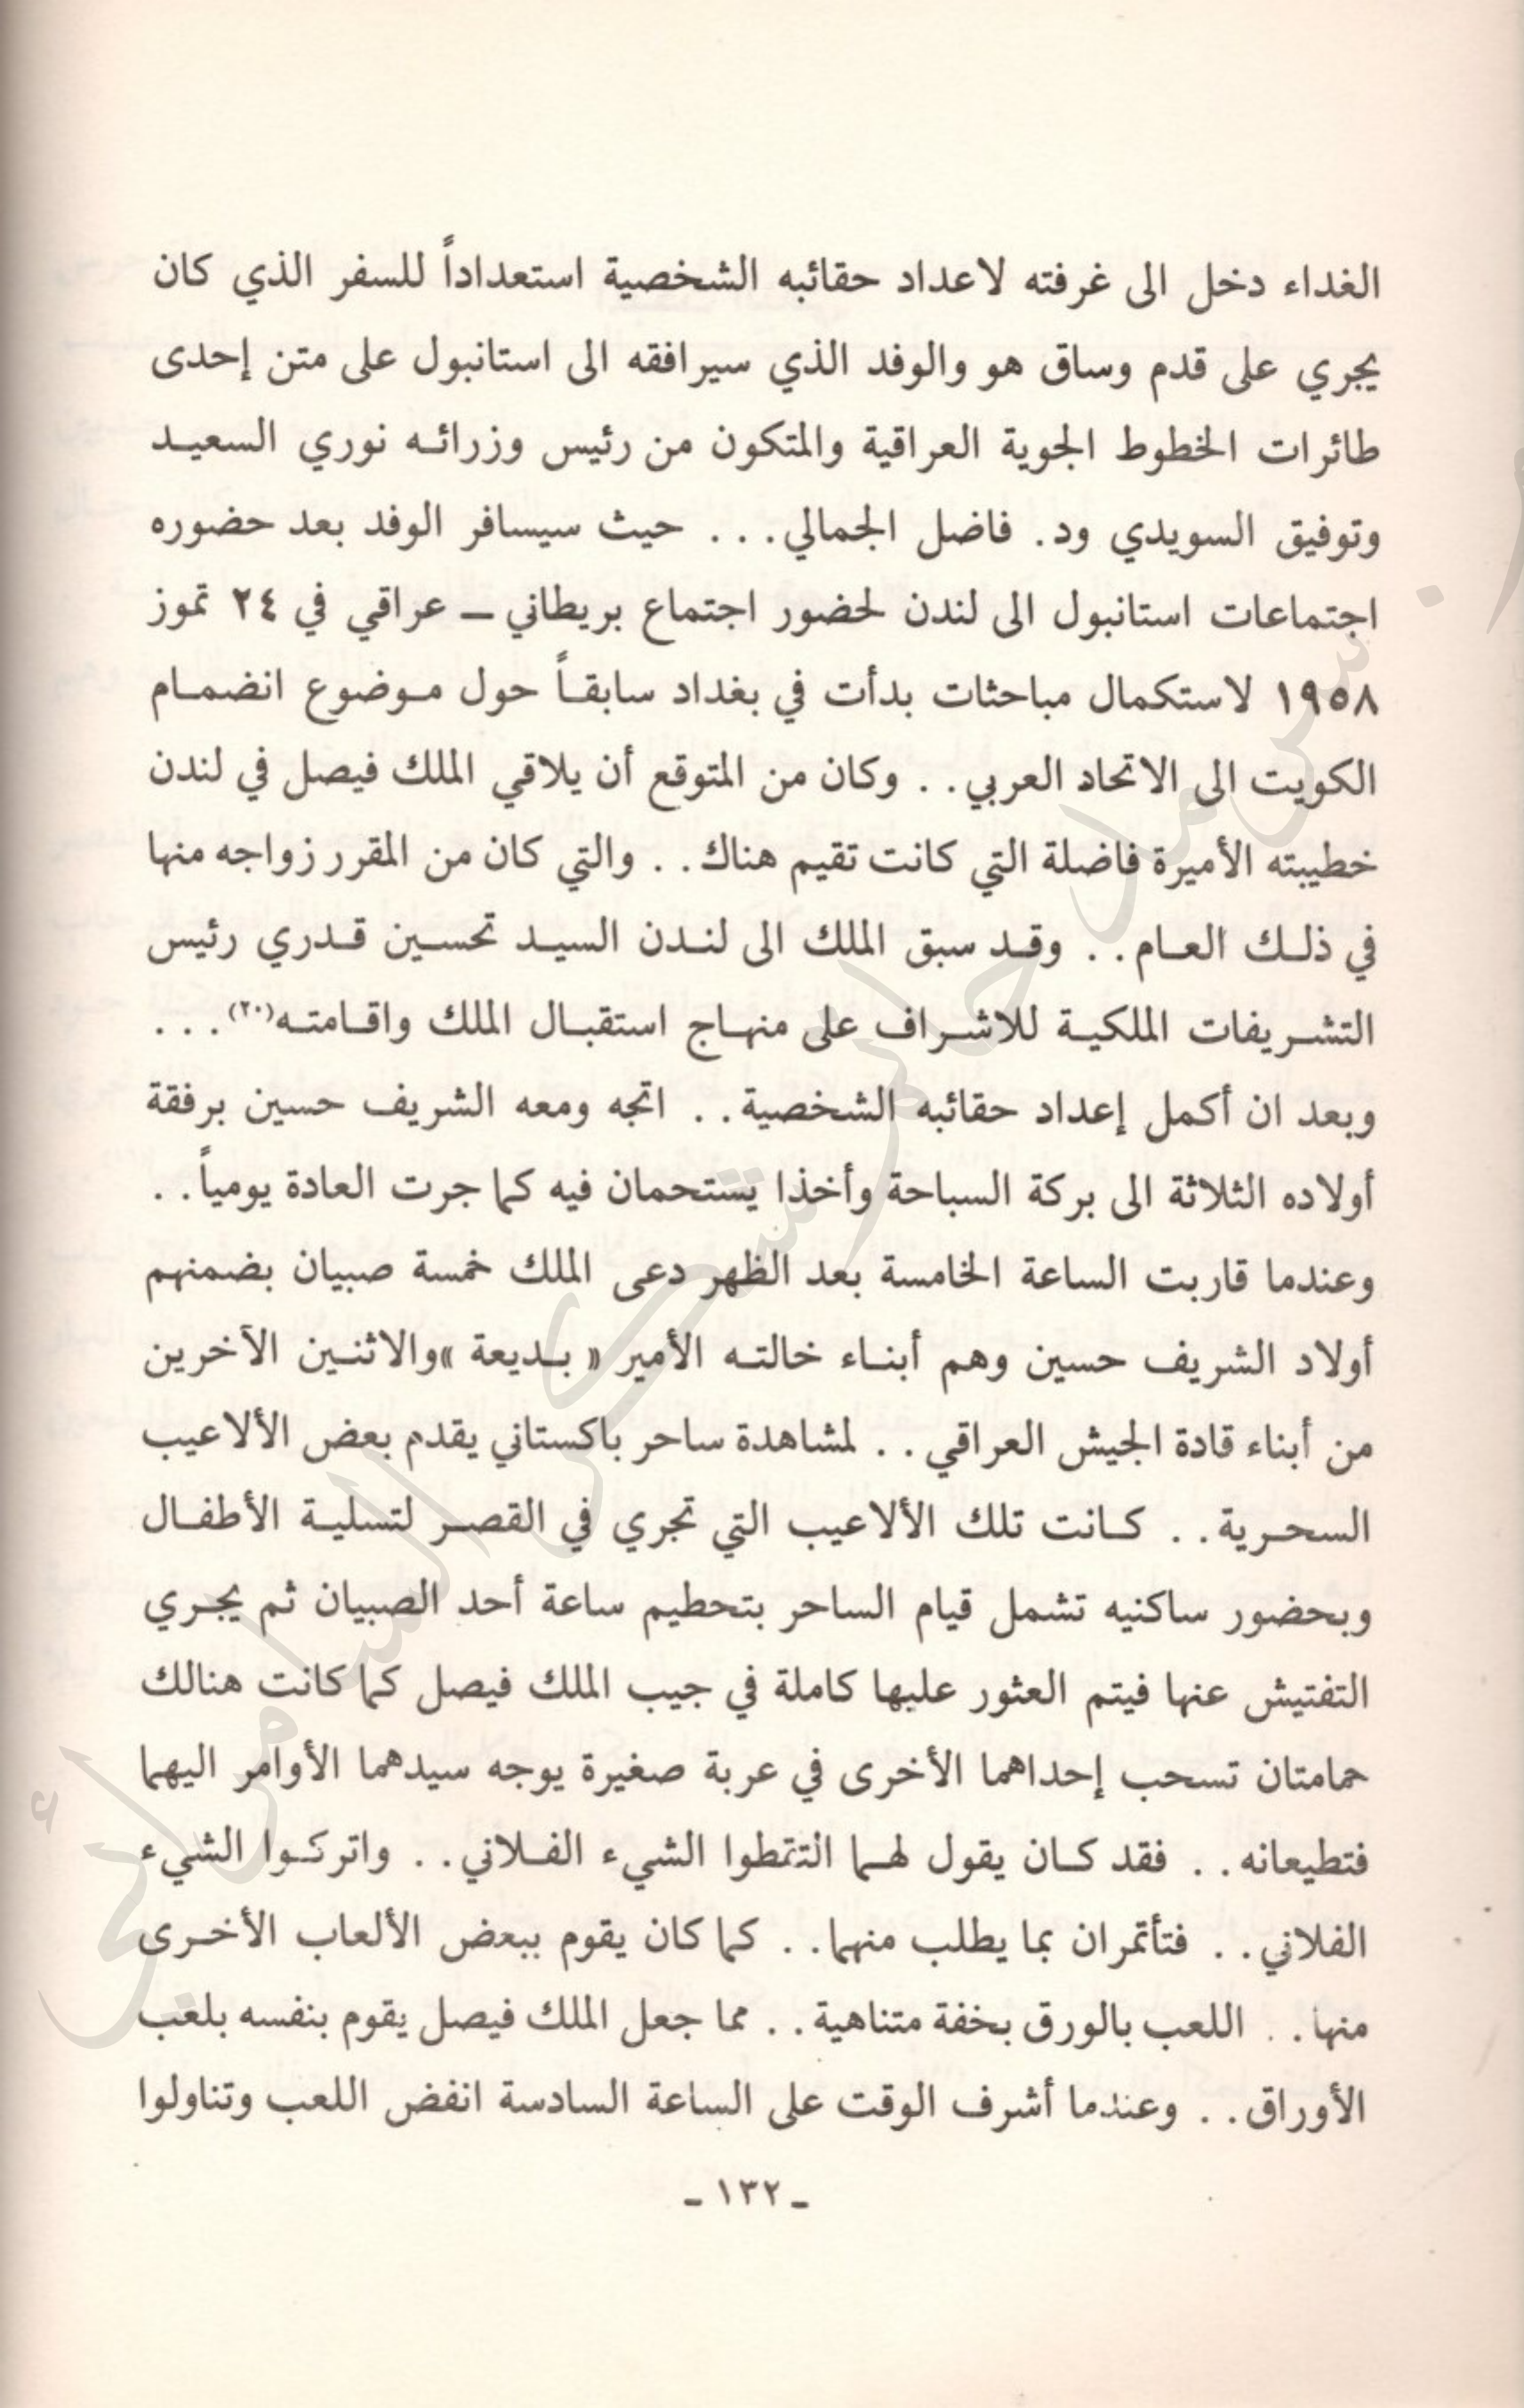 الغداء دخل الى غرفته لاعداد حقائبه الشخصية استعداداً للسفر الذي كان
يجري على قدم وساق هو والوفد الذي سيرافقه الى استانبول على متن إحدى
طائرات الخطوط الجوية العراقية والمتكون من رئيس وزرائه نوري السعيد
وتوفيق السويدي ود. فاضل الجمالي... حيث سيسافر الوفد بعد حضوره
اجتماعات استانبول الى لندن لحضور اجتماع بريطاني ـ عراقي في ٢٤ تموز
١٩٥٨ لاستكمال مباحثات بدأت في بغداد سابقاً حول موضوع انضمام
الكويت الى الاتحاد العربي.. وكان من المتوقع أن يلاقي الملك فيصل في لندن
خطيبته الأميرة فاضلة التي كانت تقيم هناك.. والتي كان من المقرر زواجه منها
في ذلك العام.. وقد سبق الملك الى لندن السيد تحسين قدري رئيس
التشريفات الملكية للاشراف على منهاج استقبال الملك واقامته(٢٠)...
وبعد ان أكمل إعداد حقائبه الشخصية.. اتجه ومعه الشريف حسين برفقة
أولاده الثلاثة الى بركة السباحة وأخذا يستحمان فيه كما جرت العادة يومياً..
وعندما قاربت الساعة الخامسة بعد الظهر دعى الملك خمسة صبيان بضمنهم
أولاد الشريف حسين وهم أبناء خالته الأمير « بديعة »والاثنين الآخرين
من أبناء قادة الجيش العراقي.. لمشاهدة ساحر باكستاني يقدم بعض الألاعيب
السحرية.. كانت تلك الألاعيب التي تجري في القصر لتسلية الأطفال
وبحضور ساكنيه تشمل قيام الساحر بتحطيم ساعة أحد الصبيان ثم يجري
التفتيش عنها فيتم العثور عليها كاملة في جيب الملك فيصل كما كانت هنالك
حمامتان تسحب إحداهما الأخرى في عربة صغيرة يوجه سيدهما الأوامر اليهما
فتطيعانه.. فقد كان يقول لهما التقطوا الشيء الفلاني.. واتركوا الشيء
الفلاني.. فتأتمران بما يطلب منهما.. كما كان يقوم ببعض الألعاب الأخرى
منها.. اللعب بالورق بخفة متناهية.. مما جعل الملك فيصل يقوم بنفسه بلعب
الأوراق.. وعندما أشرف الوقت على الساعة السادسة انفض اللعب وتناولوا
ـ ١٣٢ ـ